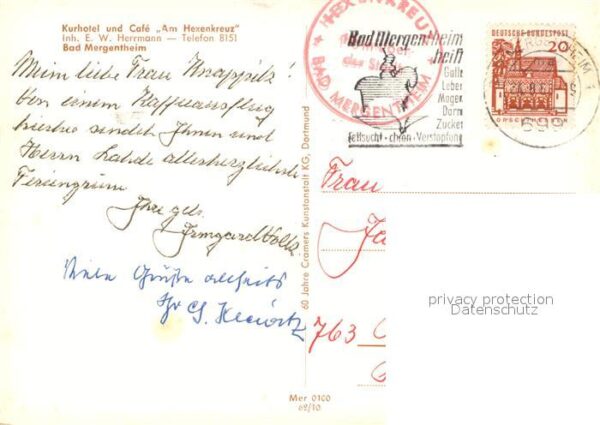 Kurhotel und Café „Am Hexenkreuz"
Inh. E. W. Herrmann — Telefon 8151
Bad Mergentheim
Meine liebe Frau
Von einem Kaffeeausflug
hierher sendet Ihnen und
Herrn allerherzlichste
Feriengrüße
Ihre
Irmgard
Viele Grüße allseits
Ihr
60 Jahre Cramers Kunstanstalt KG, Dortmund
Mer 0100
62/10
HEXENKREUZ
BAD MERGENTHEIM
Bad Mergentheim
heilt
Galle
Leber
Magen
Darm
Zucker
Fettsucht · chron · Verstopfung
DEUTSCHE BUNDESPOST
20
LORSCH HESSEN
699
Frau
763
privacy protection
Datenschutz